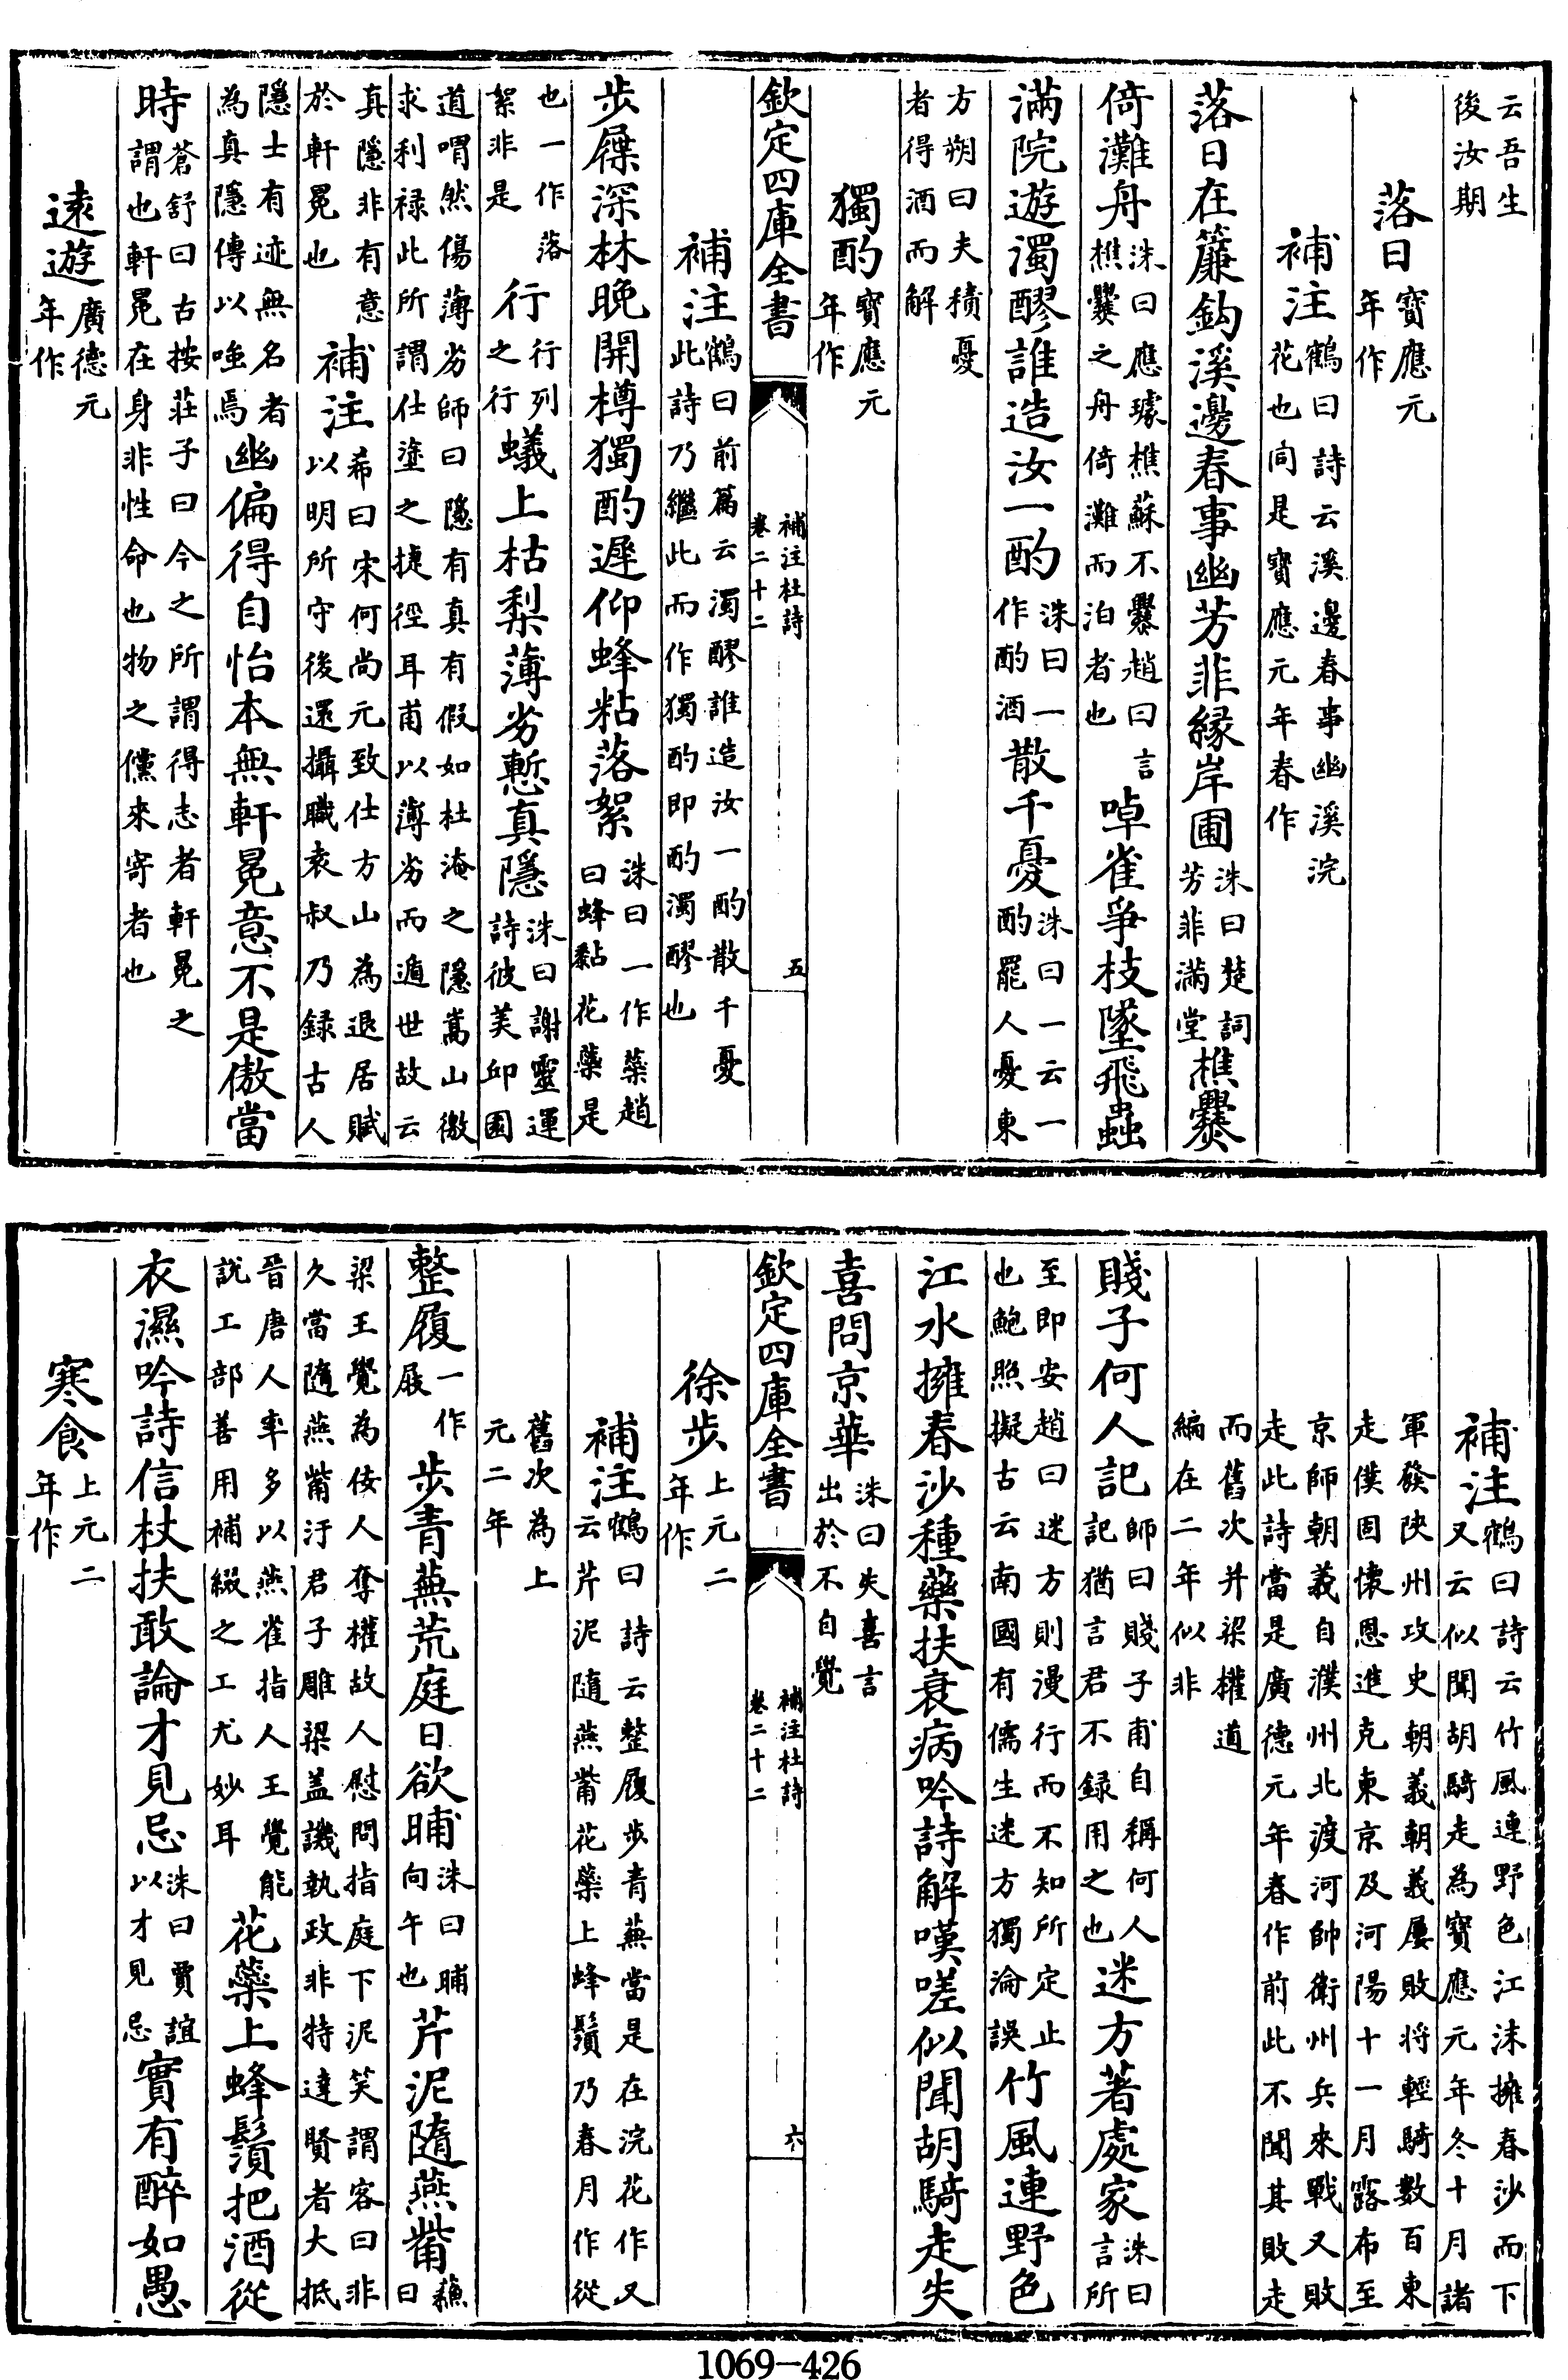 云吾生
後汝期
落日寶應元
年作
補注鶴曰詩云溪邊春事幽溪浣
花也同是寶應元年春作
落日在簾鈎溪邊春事幽芳菲緣岸圃洙曰楚詞
芳菲滿堂樵爨
倚灘舟洙曰應璩樵蘇不爨趙曰言
樵爨之舟倚灘而泊者也啅雀爭枝墜飛蟲
滿院遊濁醪誰造汝一酌洙曰一
作酌酒散千憂洙曰一云一
酌罷人憂東
方朔曰夫積憂
者得酒而解
獨酌寶應元
年作
欽定四庫全書
補注杜詩
卷二十二
五
補注鶴曰前篇云濁醪誰造汝一酌散千憂
此詩乃繼此而作獨酌即酌濁醪也
步屧深林晚開樽獨酌遲仰蜂粘落絮洙曰一作蘂趙
曰蜂黏花蘂是
也一作落
絮非是行行列
之行蟻上枯梨薄劣慙真隱洙曰謝靈運
詩彼美邱園
道喟然傷薄劣師曰隱有真有假如杜淹之隱嵩山徼
求利禄此所謂仕塗之捷徑耳甫以薄劣而遁世故云
真隱非有意
於軒冕也補注希曰宋何尚元致仕方山為退居賦
以明所守後還攝職袁叔乃録古人
隱士有迹無名者
為真隱傳以嗤焉幽偏得自怡本無軒冕意不是傲當
時蒼舒曰古按莊子曰今之所謂得志者軒冕之
謂也軒冕在身非性命也物之儻來寄者也
遠遊廣德元
年作
補注鶴曰詩云竹風連野色江沫擁春沙而下
又云似聞胡騎走為寶應元年冬十月諸
軍發陜州攻史朝義朝義屢敗將輕騎數百東
走僕固懷恩進克東京及河陽十一月露布至
京師朝義自濮州北渡河帥衛州兵來戰又敗
走此詩當是廣德元年春作前此不聞其敗走
而舊次并梁權道
編在二年似非
賤子何人記師曰賤子甫自稱何人
記猶言君不録用之也迷方著處家洙曰
言所
至即安趙曰迷方則漫行而不知所定止
也鮑照擬古云南國有儒生迷方獨淪誤竹風連野色
江水擁春沙種藥扶衰病吟詩解嘆嗟似聞胡騎走失
喜問京華洙曰失喜言
出於不自覺
欽定四庫全書
補注杜詩
卷二十二
六
徐步上元二
年作
補注鶴曰詩云整履步青蕪當是在浣花作又
云芹泥隨燕觜花蘂上蜂鬚乃春月作從
舊次為上
元二年
整履一作
屐步青蕪荒庭日欲晡洙曰晡
向午也芹泥隨燕觜蘇
曰
梁王覺為佞人奪權故人慰問指庭下泥笑謂客曰非
久當隨燕觜汙君子雕梁盖譏執政非特達賢者大抵
晉唐人率多以燕雀指人王覺能
説工部善用補綴之工尤妙耳花蘂上蜂鬚把酒從
衣濕吟詩信杖扶敢論才見忌洙曰賈誼
以才見忌實有醉如愚
寒食上元二
年作
1069-426